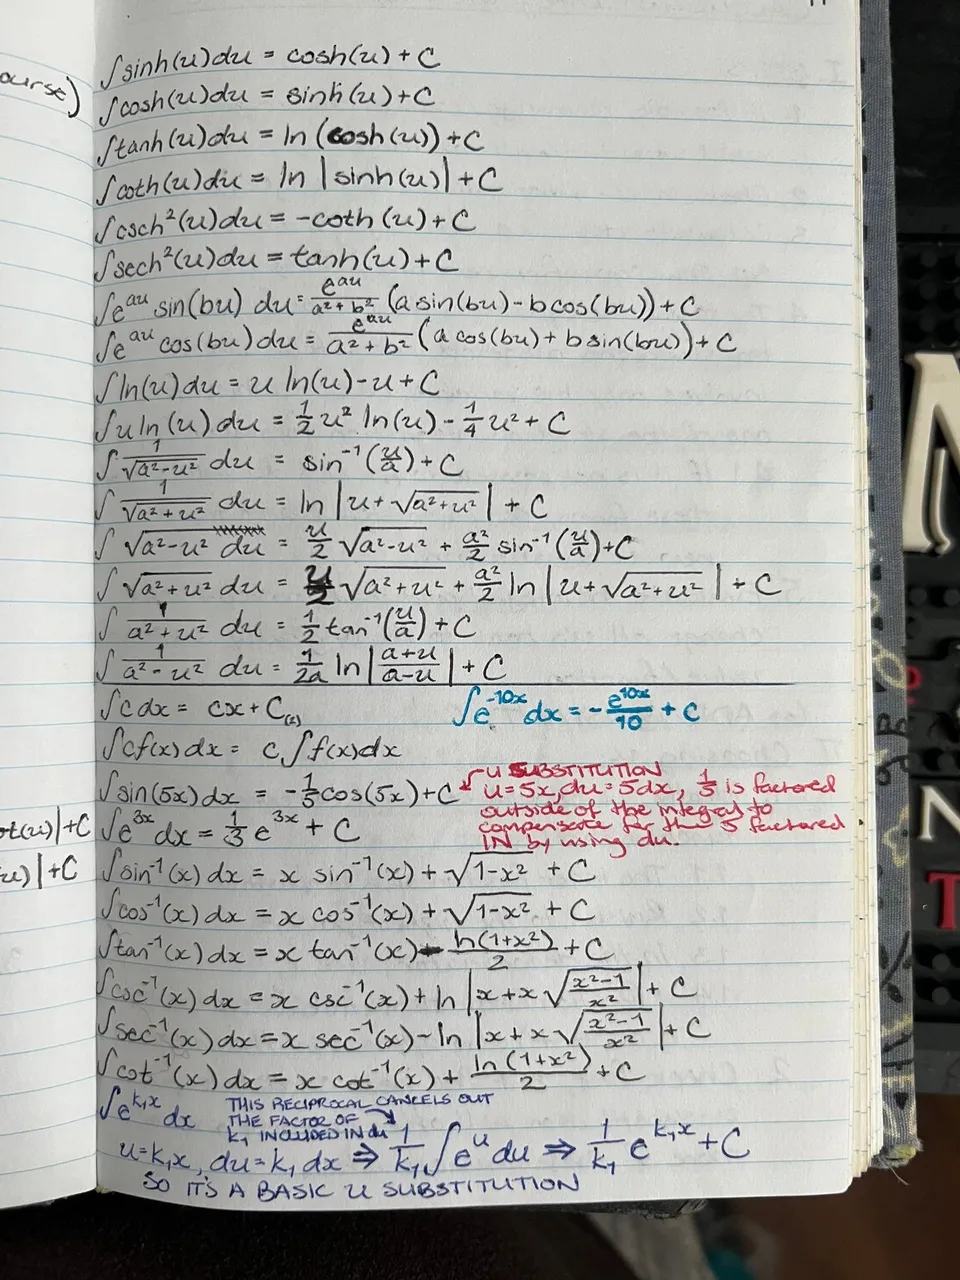 ourse)
∫sinh(u)du = cosh(u)+C
∫cosh(u)du = sinh(u)+C
∫tanh(u)du = ln(cosh(u))+C
∫coth(u)du = ln|sinh(u)|+C
∫csch²(u)du = -coth(u)+C
∫sech²(u)du = tanh(u)+C
∫e^{au} sin(bu) du = e^{au}/(a²+b²) (a sin(bu) - b cos(bu)) + C
∫e^{au} cos(bu) du = e^{au}/(a²+b²) (a cos(bu) + b sin(bu)) + C
∫ln(u)du = u ln(u) - u + C
∫u ln(u) du = 1/2 u² ln(u) - 1/4 u² + C
∫ 1/√(a²-u²) du = sin⁻¹(u/a) + C
∫ 1/√(a²+u²) du = ln|u+√(a²+u²)| + C
∫ √(a²-u²) du = u/2 √(a²-u²) + a²/2 sin⁻¹(u/a) + C
∫ √(a²+u²) du = u/2 √(a²+u²) + a²/2 ln|u+√(a²+u²)| + C
∫ 1/(a²+u²) du = 1/2 tan⁻¹(u/a) + C
∫ 1/(a²-u²) du = 1/2a ln|(a+u)/(a-u)| + C
∫c dx = cx + C₍₂₎
∫e^{-10x} dx = -e^{10x}/10 + C
∫cf(x)dx = c∫f(x)dx
∫sin(5x)dx = -1/5 cos(5x)+C
U SUBSTITUTION
u=5x, du=5dx, 1/5 is factored
outside of the integral to
compensate for the 5 factored
IN by using du.
∫e^{3x} dx = 1/3 e^{3x} + C
ot(u)|+C
u)|+C
∫sin⁻¹(x) dx = x sin⁻¹(x) + √(1-x²) + C
∫cos⁻¹(x) dx = x cos⁻¹(x) + √(1-x²) + C
∫tan⁻¹(x) dx = x tan⁻¹(x) - ln(1+x²)/2 + C
∫csc⁻¹(x) dx = x csc⁻¹(x) + ln|x+x√((x²-1)/x²)| + C
∫sec⁻¹(x) dx = x sec⁻¹(x) - ln|x+x√((x²-1)/x²)| + C
∫cot⁻¹(x) dx = x cot⁻¹(x) + ln(1+x²)/2 + C
∫e^{k₁x} dx
THIS RECIPROCAL CANCELS OUT
THE FACTOR OF
k₁ INCLUDED IN du
u=k₁x, du=k₁dx ⇒ 1/k₁ ∫e^u du ⇒ 1/k₁ e^{k₁x} + C
SO IT'S A BASIC U SUBSTITUTION
N
T